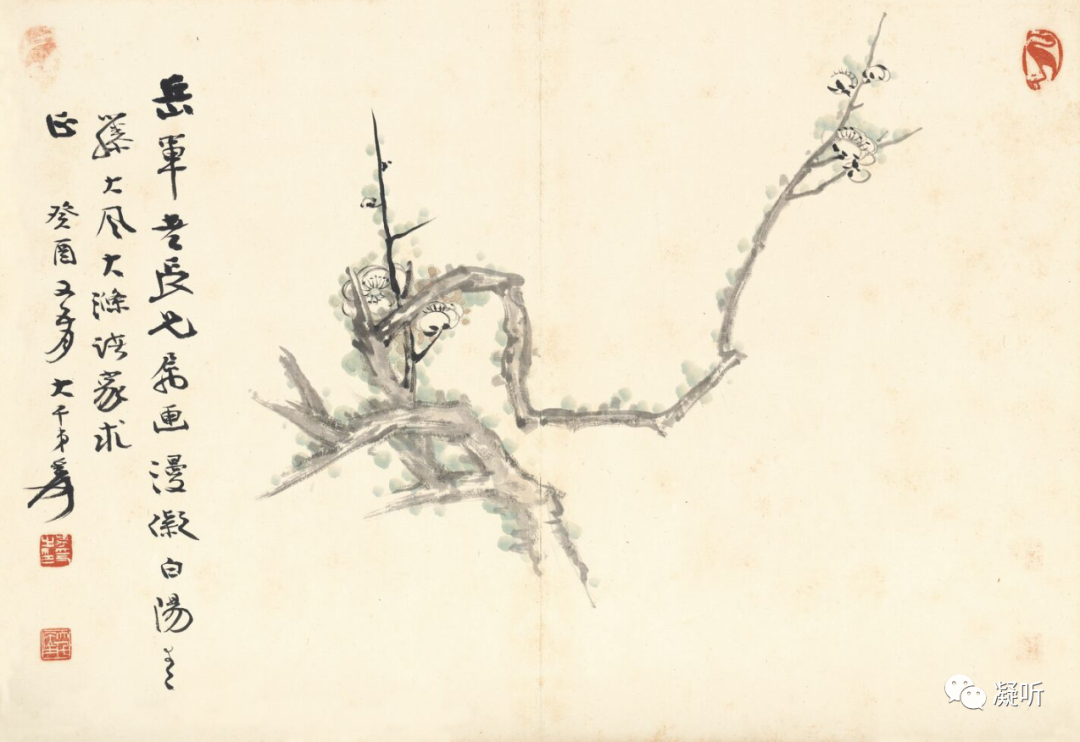 岳軍老長兄属画漫儗白陽青
藤大风大滌诸家求
正 癸酉又五月 大千弟爰
凝听